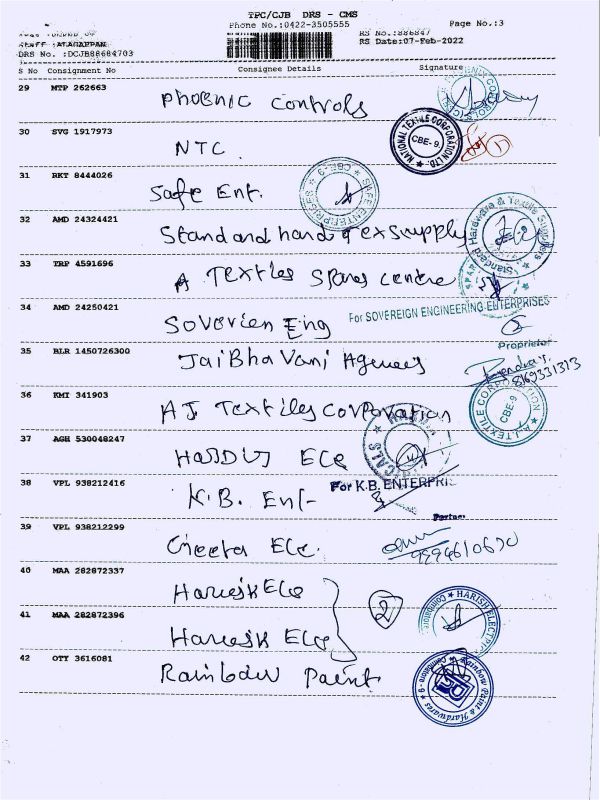 TPC/CJB DRS - CMS
Phone No.:0422-3505555
Page No.:3
RS No.:886847
RS Date:07-Feb-2022
Staff :ALAGAPPAN
DRS No. :DCJB88684703
S No Consignment No Consignee Details Signature
29 MTP 262663 Phoenic Controls
30 SVG 1917973 NTC
NATIONAL TEXTILE CORPORATION LTD. CBE-9
31 RKT 8444026 Safe Ent.
SAFE ENTERPRISES CBE-9
32 AMD 24324421 Standard hard Tex supply
Standard Hardware & Textile Suppliers
33 TRP 4591696 A Textiles Spares Centre
34 AMD 24250421 Soverien Eng
For SOVEREIGN ENGINEERING ENTERPRISES
Proprietor
35 BLR 1450726300 Jai Bhavani Agencies
Rajendra T.
8169331313
36 KMI 341903 A J Textiles Corporation
A.J. TEXTILE CORPORATION CBE-9
37 AGH 530048247 Ele
38 VPL 938212416 K.B. Ent-
For K.B. ENTERPRI
Partner
39 VPL 938212299 Cheeta Ele.
9994610630
40 MAA 282872337 Harresk Ele
2
41 MAA 282872396 Harresk Ele
HARISH ELECTRI Coimbatore
42 OTY 3616081 Rainbow Paint
Rainbow Paint & Hardwares Coimbatore - 9